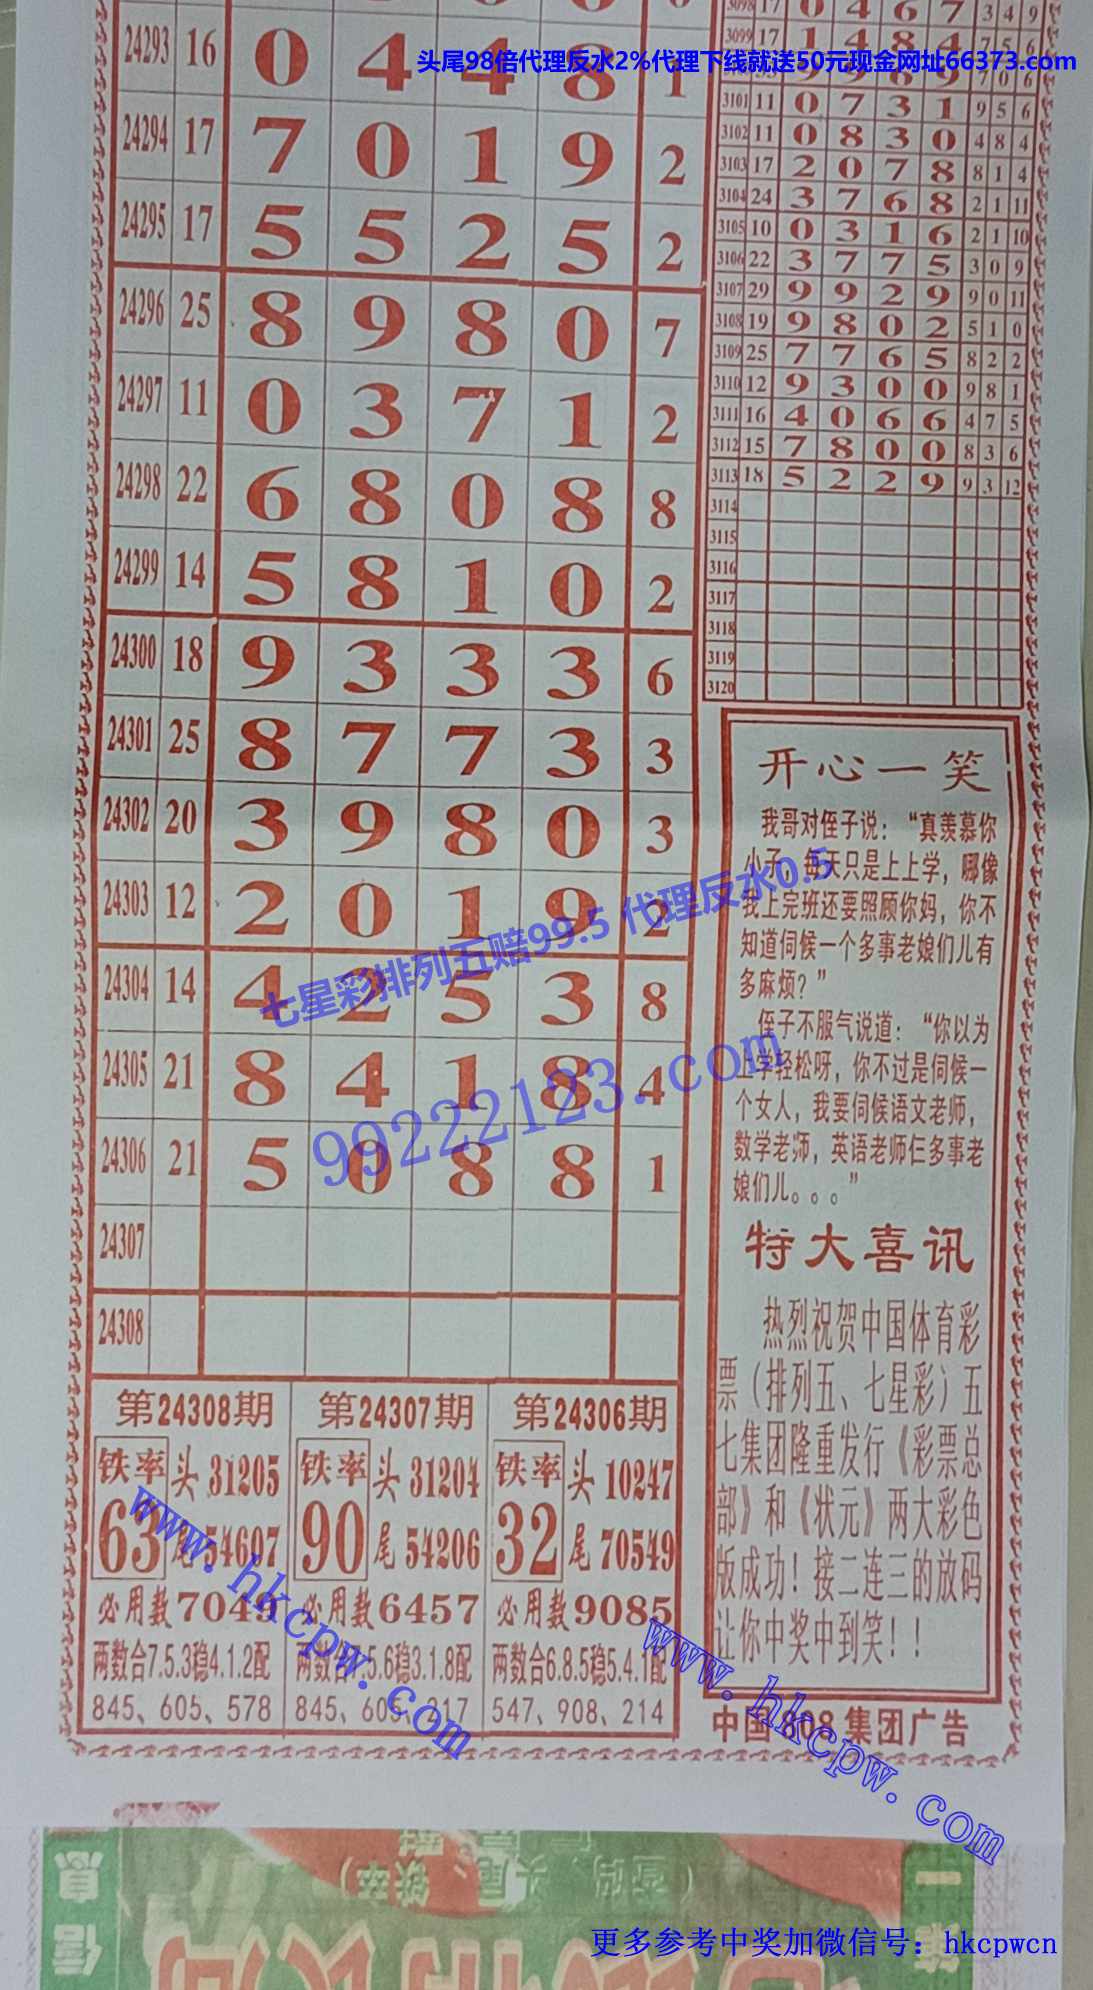 头尾98倍代理反水2%代理下线就送50元现金网址66373.com
24293 16 0 4 4 8 1
24294 17 7 0 1 9 2
24295 17 5 5 2 5 2
24296 25 8 9 8 0 7
24297 11 0 3 7 1 2
24298 22 6 8 0 8 8
24299 14 5 8 1 0 2
24300 18 9 3 3 3 6
24301 25 8 7 7 3 3
24302 20 3 9 8 0 3
24303 12 2 0 1 9 2
24304 14 4 2 5 3 8
24305 21 8 4 1 8 4
24306 21 5 0 8 8 1
24307
24308
3098 17 0 4 6 7 3 4 9
3099 17 1 4 8 4 7 5 6
9 9 6 9 7 0 6
3101 11 0 7 3 1 9 5 6
3102 11 0 8 3 0 4 8 4
3103 17 2 0 7 8 8 1 4
3104 24 3 7 6 8 2 1 11
3105 10 0 3 1 6 2 1 10
3106 22 3 7 7 5 3 0 9
3107 29 9 9 2 9 9 0 11
3108 19 9 8 0 2 5 1 0
3109 25 7 7 6 5 8 2 2
3110 12 9 3 0 0 9 8 1
3111 16 4 0 6 6 4 7 5
3112 15 7 8 0 0 8 3 6
3113 18 5 2 2 9 9 3 12
3114
3115
3116
3117
3118
3119
3120
七星彩排列五赔99.5 代理反水0.5
99222123.com
开心一笑
我哥对侄子说：“真羡慕你
小子，每天只是上上学，哪像
我上完班还要照顾你妈，你不
知道伺候一个多事老娘们儿有
多麻烦？”
侄子不服气说道：“你以为
上学轻松呀，你不过是伺候一
个女人，我要伺候语文老师，
数学老师，英语老师仨多事老
娘们儿。。。”
特大喜讯
热烈祝贺中国体育彩
票（排列五、七星彩）五
七集团隆重发行《彩票总
部》和《状元》两大彩色
版成功！接二连三的放码
让你中奖中到笑！！
中国808集团广告
第24308期
铁率 头 31205
63 尾 54607
必用数7049
两数合7.5.3稳4.1.2配
845、605、578
第24307期
铁率 头 31204
90 尾 54206
必用数6457
两数合7.5.6稳3.1.8配
845、605、217
第24306期
铁率 头 10247
32 尾 70549
必用数9085
两数合6.8.5稳5.4.1配
547、908、214
www.hkcpw.com
www.hkcpw.com
信息
第一
（密码、头尾、铁率）
更多参考中奖加微信号：hkcpwcn